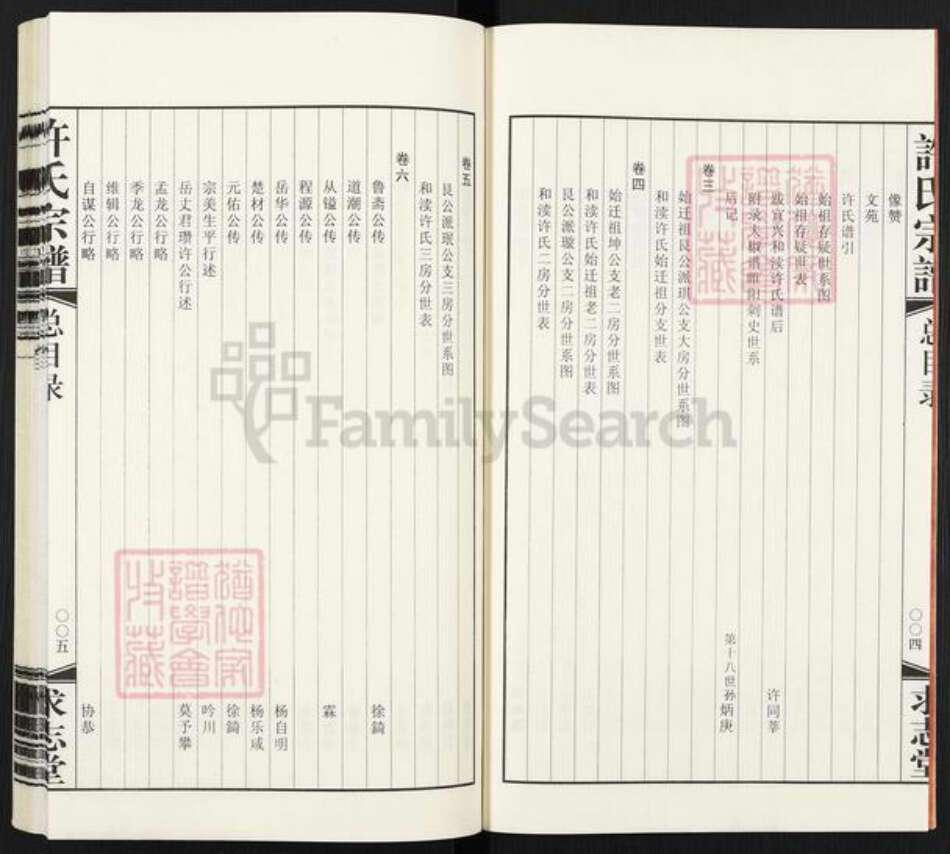 許氏宗譜
总目录
〇〇四
求志堂
像赞
文苑
许氏谱引
始祖存疑世系图
始祖存疑世表
跋宜兴和渎许氏谱后 许同莘
附录大椒谱盟附刺史世系
后记 第十八世孙炳庚
卷三
始迁祖艮公派琪公支大房分世系图
和渎许氏始迁祖分支世表
卷四
始迁祖坤公支老二房分世系图
和渎许氏始迁祖老二房分世表
艮公派璇公支二房分世系图
和渎许氏二房分世表
卷五
艮公派珉公支三房分世系图
和渎许氏三房分世表
卷六
鲁斋公传 徐錡
道潮公传
从镒公传 霖
程源公传
岳华公传 杨自明
楚材公传 杨乐咸
元佑公传 徐錡
宗美生平行述 吟川
岳丈君瓒许公行述 莫予攀
孟龙公行略
季龙公行略
维辑公行略
自谋公行略 协恭
許氏宗譜
总目录
〇〇五
求志堂
FamilySearch